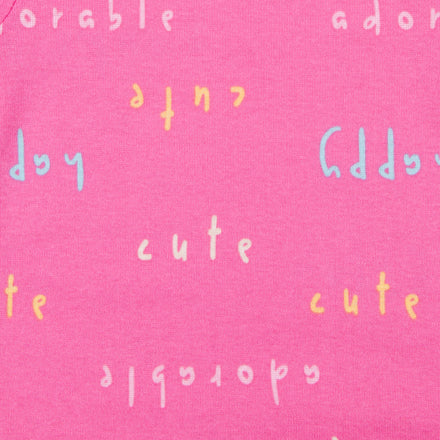 orable ador
cute
happy happy
cute
te cute
adorable